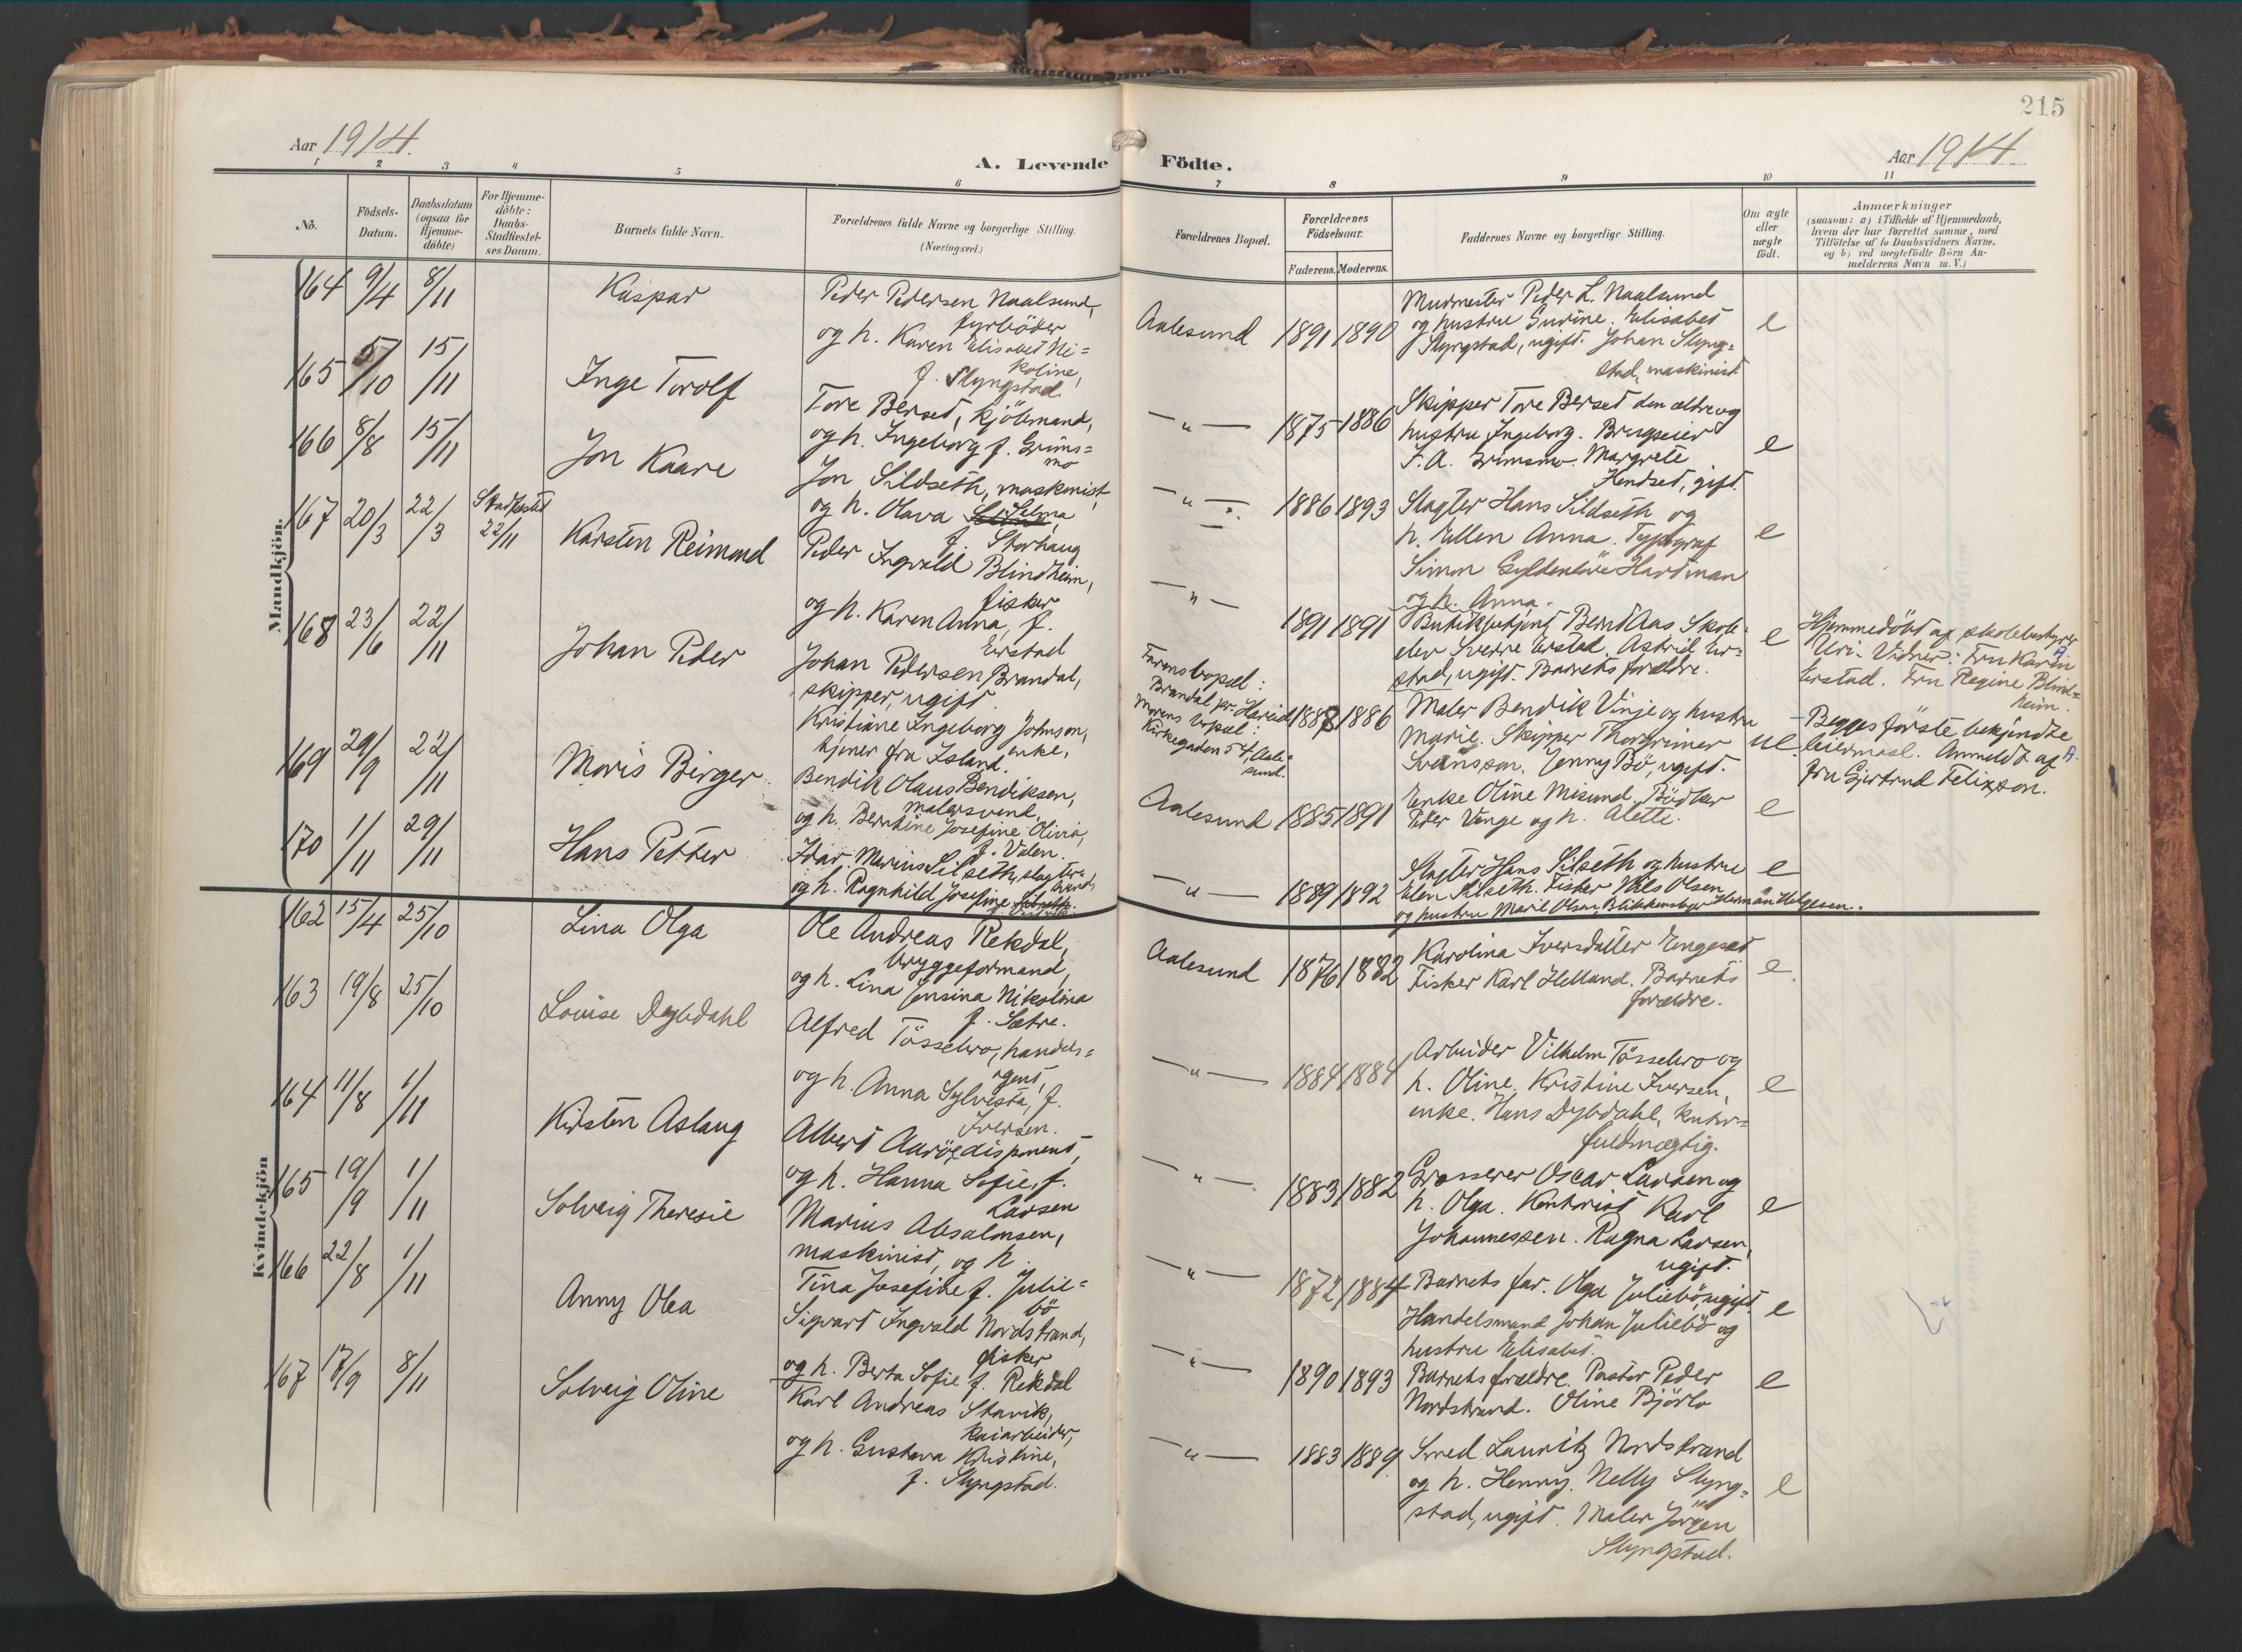 215
Aar 1914.
A. Levende Födte.
Aar 1914.
1 2 3 4 5 6 7 8 9 10 11
No.
Födsels-Datum.
Daabsdatum (ogsaa for Hjemme-döbte)
For Hjemme-döbte: Daabs-Stadfæstel-ses Datum.
Barnets fulde Navn.
Forældrenes fulde Navne og borgerlige Stilling.
(Næringsvei.)
Forældrenes Bopæl.
Forældrenes Födselsaar.
Faderens. Moderens.
Faddernes Navne og borgerlige Stilling.
Om ægte eller uægte födt.
Anmærkninger
(saasom: a) i Tilfælde af Hjemmedaab,
hvem der har forrettet samme, med
Tilföielse af to Daabsvidners Navne.
og b) ved uægtefödte Börn An-
melderens Navn m. V.)
Mandkjön.
164 9/4 8/11
Kaspar
Peder Pedersen Naalsund,
fyrböder
og h. Karen Elisabet Ni=
koline,
f. Slyngstad.
Aalesund 1891 1890
Murmester Peder L. Naalsund
og hustru Gurine. Elisabet
Slyngstad, ugift. Johan Slyng=
stad, maskinist.
e
165 5/10 15/11
Inge Torolf
Tore Berset, kjöbmand,
og h. Ingeborg f. Grims=
mo
— " — 1875 1886
Skipper Tore Berset den ældre og
hustru Ingeborg. Brugseier
F. A. Grimsmo. Margrete
Hendset, gift.
e
166 8/8 15/11
Jon Kaare
Jon Sildseth, maskinist,
og h. Olava Selma
f. Storhaug
— " — 1886 1893
Slagter Hans Sildseth og
h. Ellen Anna. Typograf
Simon Gyldenlöve Hartman
og h. Anna.
e
167 20/3 22/3 Stadfæstet 22/11
Karsten Reimond
Peder Ingvald Blindheim,
fisker
og h. Karen Anna, f.
Eirstad
— " — 1891 1891
Bernt Aas Skole-
elev Sverre Erstad. Astrid Er=
stad, ugift. Barnets forældre.
e
Hjemmedöbt af skolebestyrer
Uri. Vidner: Fru Karin
Erstad. Fru Regine Blind=
heim.
168 23/6 22/11
Johan Peder
Johan Pedersen Brandal,
skipper, ugift.
Kristiane Ingeborg Johnson,
enke,
tjener fra Island.
Farens bopæl:
Brandal pr. Hareid
Morens bopæl:
Kirkegaden 54, Aale=
sund.
1888 1886
Maler Bendik Vinje og hustru
Marie. Skipper Thorgrimer
Sveinsson. Jenny Bö, ugift.
ue
Begges förste bekjendte
leiermaal. Anmeldt af
Fru Gjertrud Felixson.
169 29/9 22/11
Moris Birger
Bendik Olaus Bendiksen,
malersvend,
og h. Berntine Josefine Olivia,
f. Valen.
Aalesund 1885 1891
Enke Oline Mesund. Bödker
Peder Vinge og h. Alette.
e
170 1/11 29/11
Hans Petter
Idar Marius Silseth, slagter-
svend
og h. Ragnhild Josefine
— " — 1889 1892
Slagter Hans Silseth og hustru
Elen Silseth. Fisker Nils Olsen
og hustru Marie Olsen. Blikkenslager Herman Helgesen.
e
Kvindekjön
162 15/4 25/10
Lina Olga
Ole Andreas Rekdal,
bryggeformand,
og h. Lina Jensina Nikolina
f. Sætre.
Aalesund 1876 1882
Karolina Iversdatter Engeset
Fisker Karl Helland. Barnets
forældre.
e
163 19/8 25/10
Louise Dybdahl
Alfred Tösselro, handels=
agent,
og h. Anna Sylvesta, f.
Iversen.
— " — 1884 1884
Arbeider Vilhelm Tösselro og
h. Oline. Kristine Iversen,
enke. Hans Dybdahl, kontor=
fuldmægtig.
e
164 11/8 1/11
Kirsten Aslaug
Albert Aaröe, disponent,
og h. Hanna Sofie, f.
Larsen
— " — 1883 1882
Grosserer Oscar Larsen og
h. Olga. Kontorist Karl
Johannessen. Ragna Larsen,
ugift.
e
165 19/9 1/11
Solveig Theresie
Marius Absalonsen,
maskinist, og h.
Tina Josefine f. Julie=
bö
— " — 1872 1884
Barnets far. Olga Juliebö, ugift.
Handelsmand Johan Juliebö og
hustru Elisabet.
e
166 22/8 1/11
Anny Olea
Sigvart Ingvald Nordstrand,
fisker
og h. Berta Sofie f. Rekdal
— " — 1890 1893
Barnets forældre. Pastor Peder
Nordstrand. Oline Björlo
e
167 17/9 8/11
Solveig Oline
Karl Andreas Stavik,
kaiarbeider,
og h. Gustava Kristine,
f. Slyngstad.
— " — 1883 1889
Smed Lauritz Nordstrand
og h. Henny. Nelly Slyng=
stad, ugift. Maler Jörgen
Slyngstad.
e